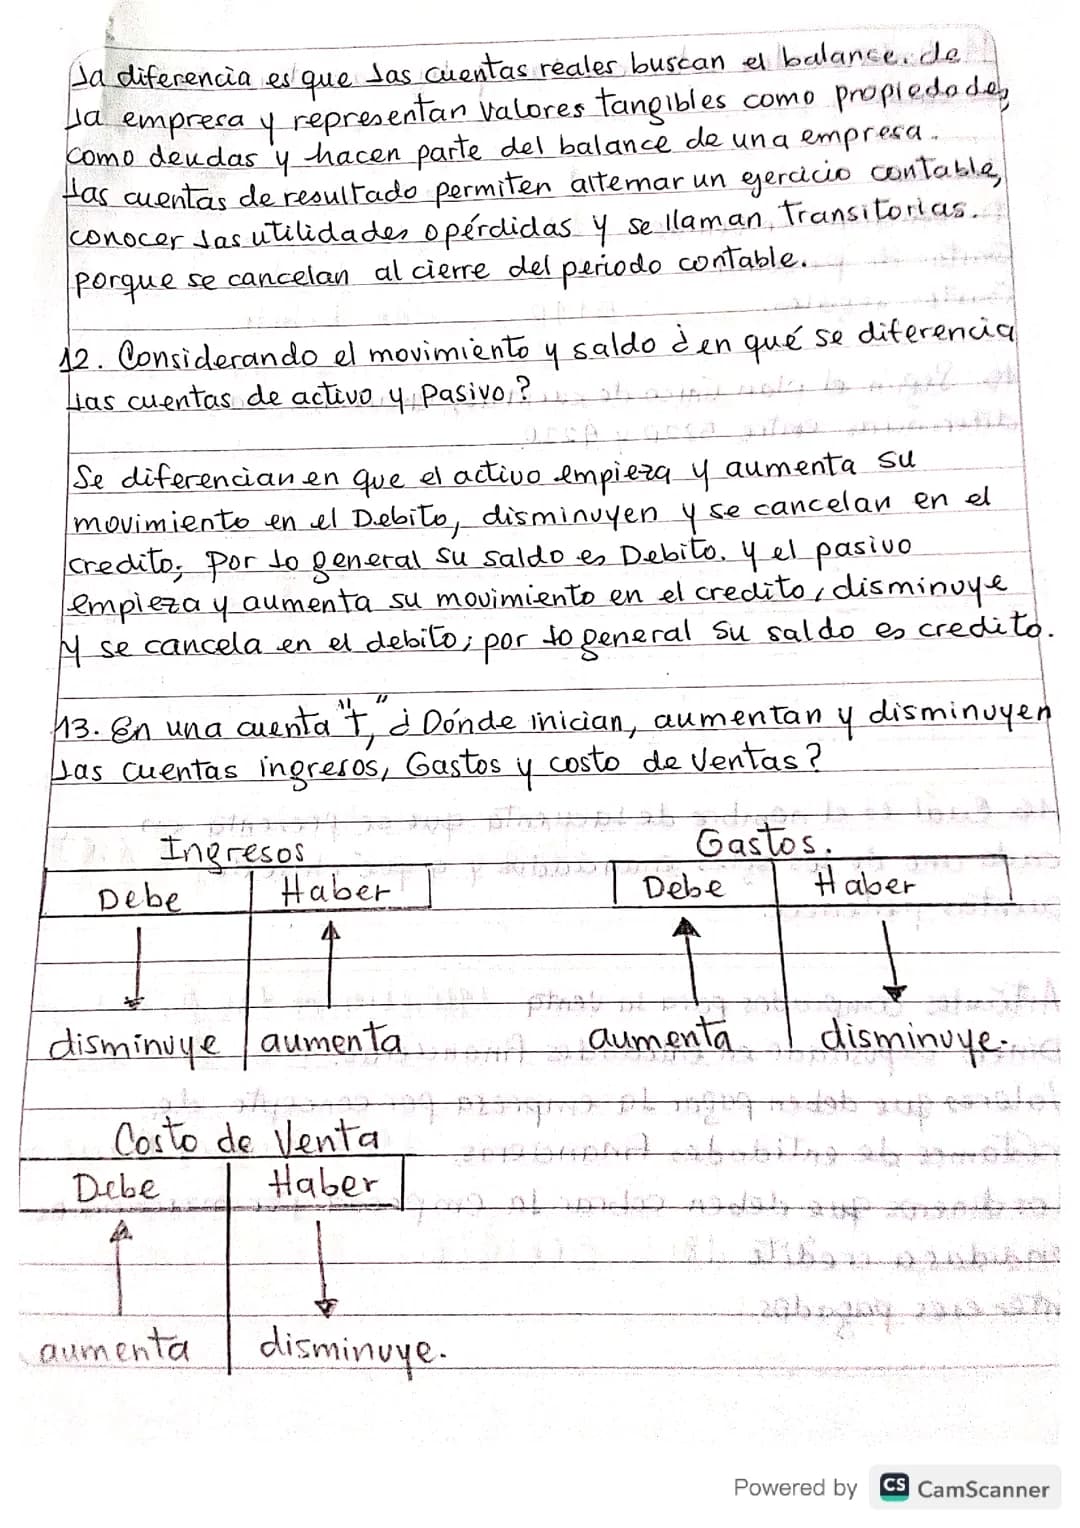 La diferencia es que las cuentas reales buscan el balance de
la empresa y representan valores tangibles como propiedades
como deudas y hacen parte del balance de una empresa.
las cuentas de resultado permiten alternar un ejercicio contable,
conocer las utilidades o pérdidas y se llaman transitorias.
porque se cancelan al cierre del periodo contable.
12. Considerando el movimiento y saldo ¿en qué se diferencia
las cuentas de activo y pasivo?
Se diferencian en que el activo empieza y aumenta su
movimiento en el Debito, disminuyen y se cancelan en el
credito; por lo general su saldo es Debito. y el pasivo
empieza y aumenta su movimiento en el credito, disminuye
y se cancela en el debito; por lo general su saldo es credito.
13. En una cuenta "t", ¿Dónde inician, aumentan y disminuyen
las cuentas ingresos, Gastos y costo de ventas?
Ingresos Gastos.
Debe Haber Debe Haber
disminuye aumenta aumenta disminuye.
Costo de Venta
Debe Haber
aumenta disminuye.
Powered by CS CamScanner